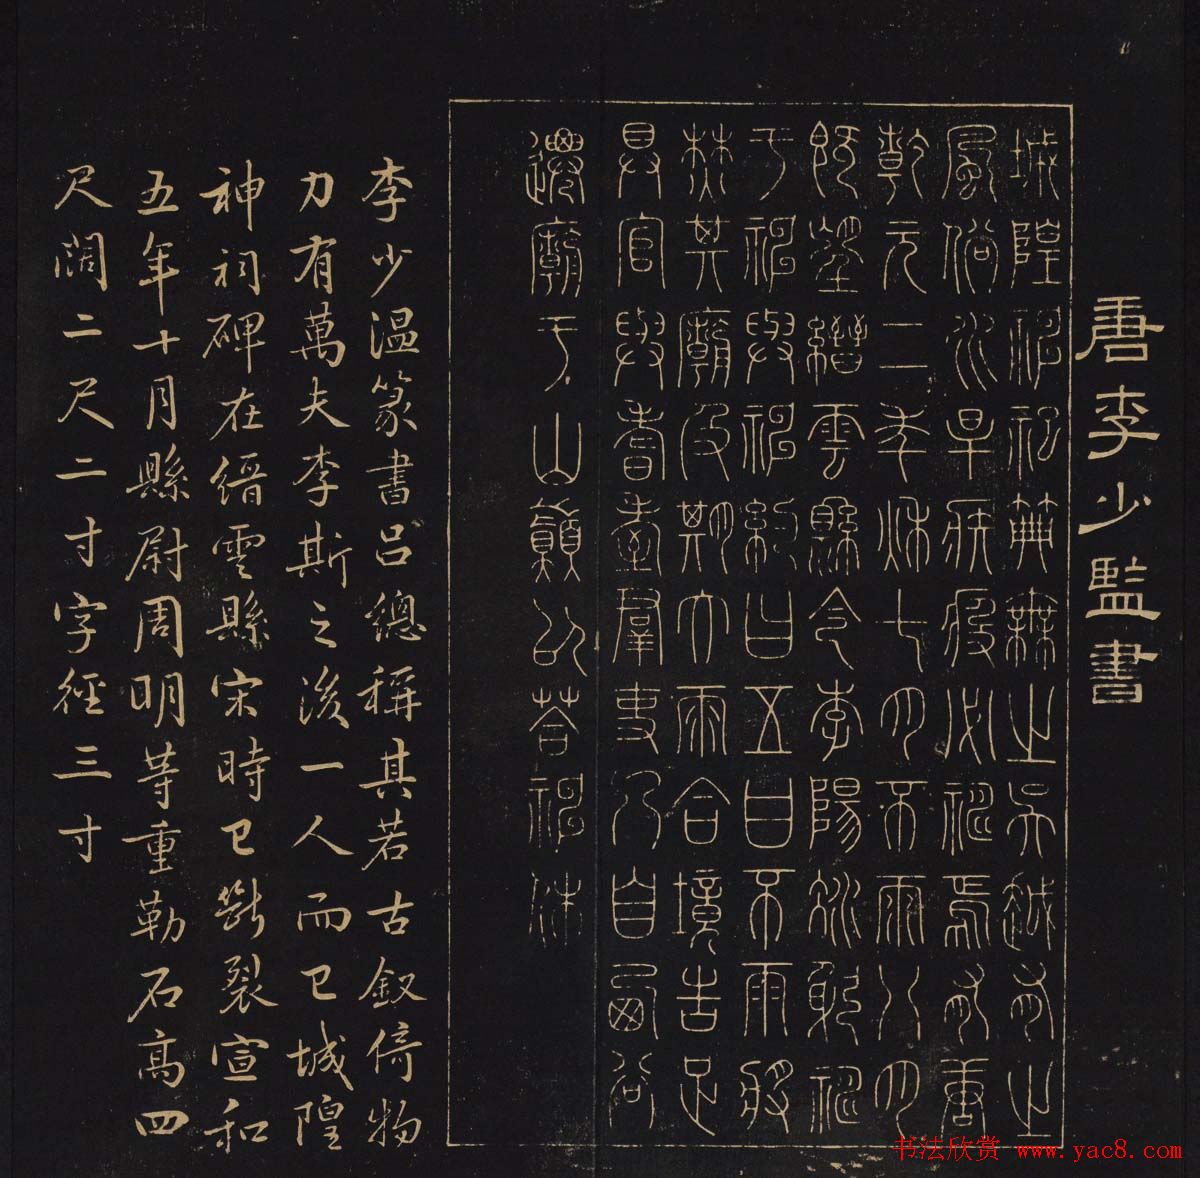 唐李少監書
城隍神祀典無之吳越有之
風俗水旱疾疫必禱焉有唐
乾元二年秋七月不雨八月
既望縉雲縣令李陽冰躬禱
于神與神約曰五日不雨將
焚其廟及期大雨合境告足
具官與耆耋羣吏乃自西谷
遷廟于山巔以答神休
李少溫篆書呂總稱其若古釵倚物
力有萬夫李斯之後一人而已城隍
神祠碑在縉雲縣宋時已斷裂宣和
五年十月縣尉周明等重勒石高四
尺闊二尺二寸字徑三寸
书法欣赏 www.yac8.com